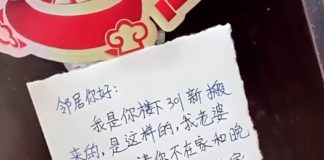 邻居你好:
我是你楼下301新搬
来的,是这样的,我老婆
请你不在家和晚